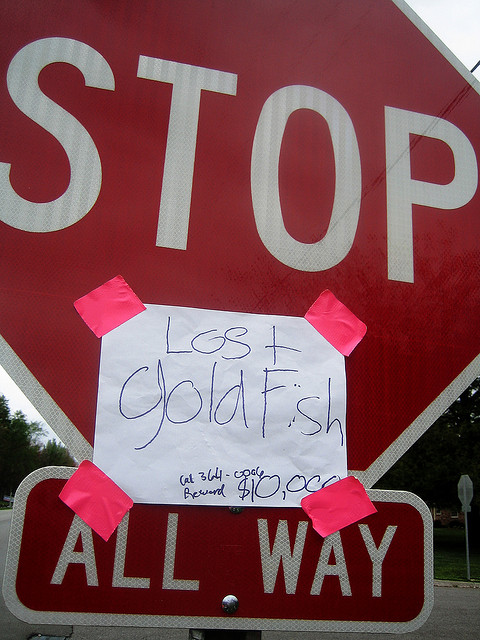 STOP
Lost
goldFish
364-
Reward $10,000
ALL WAY